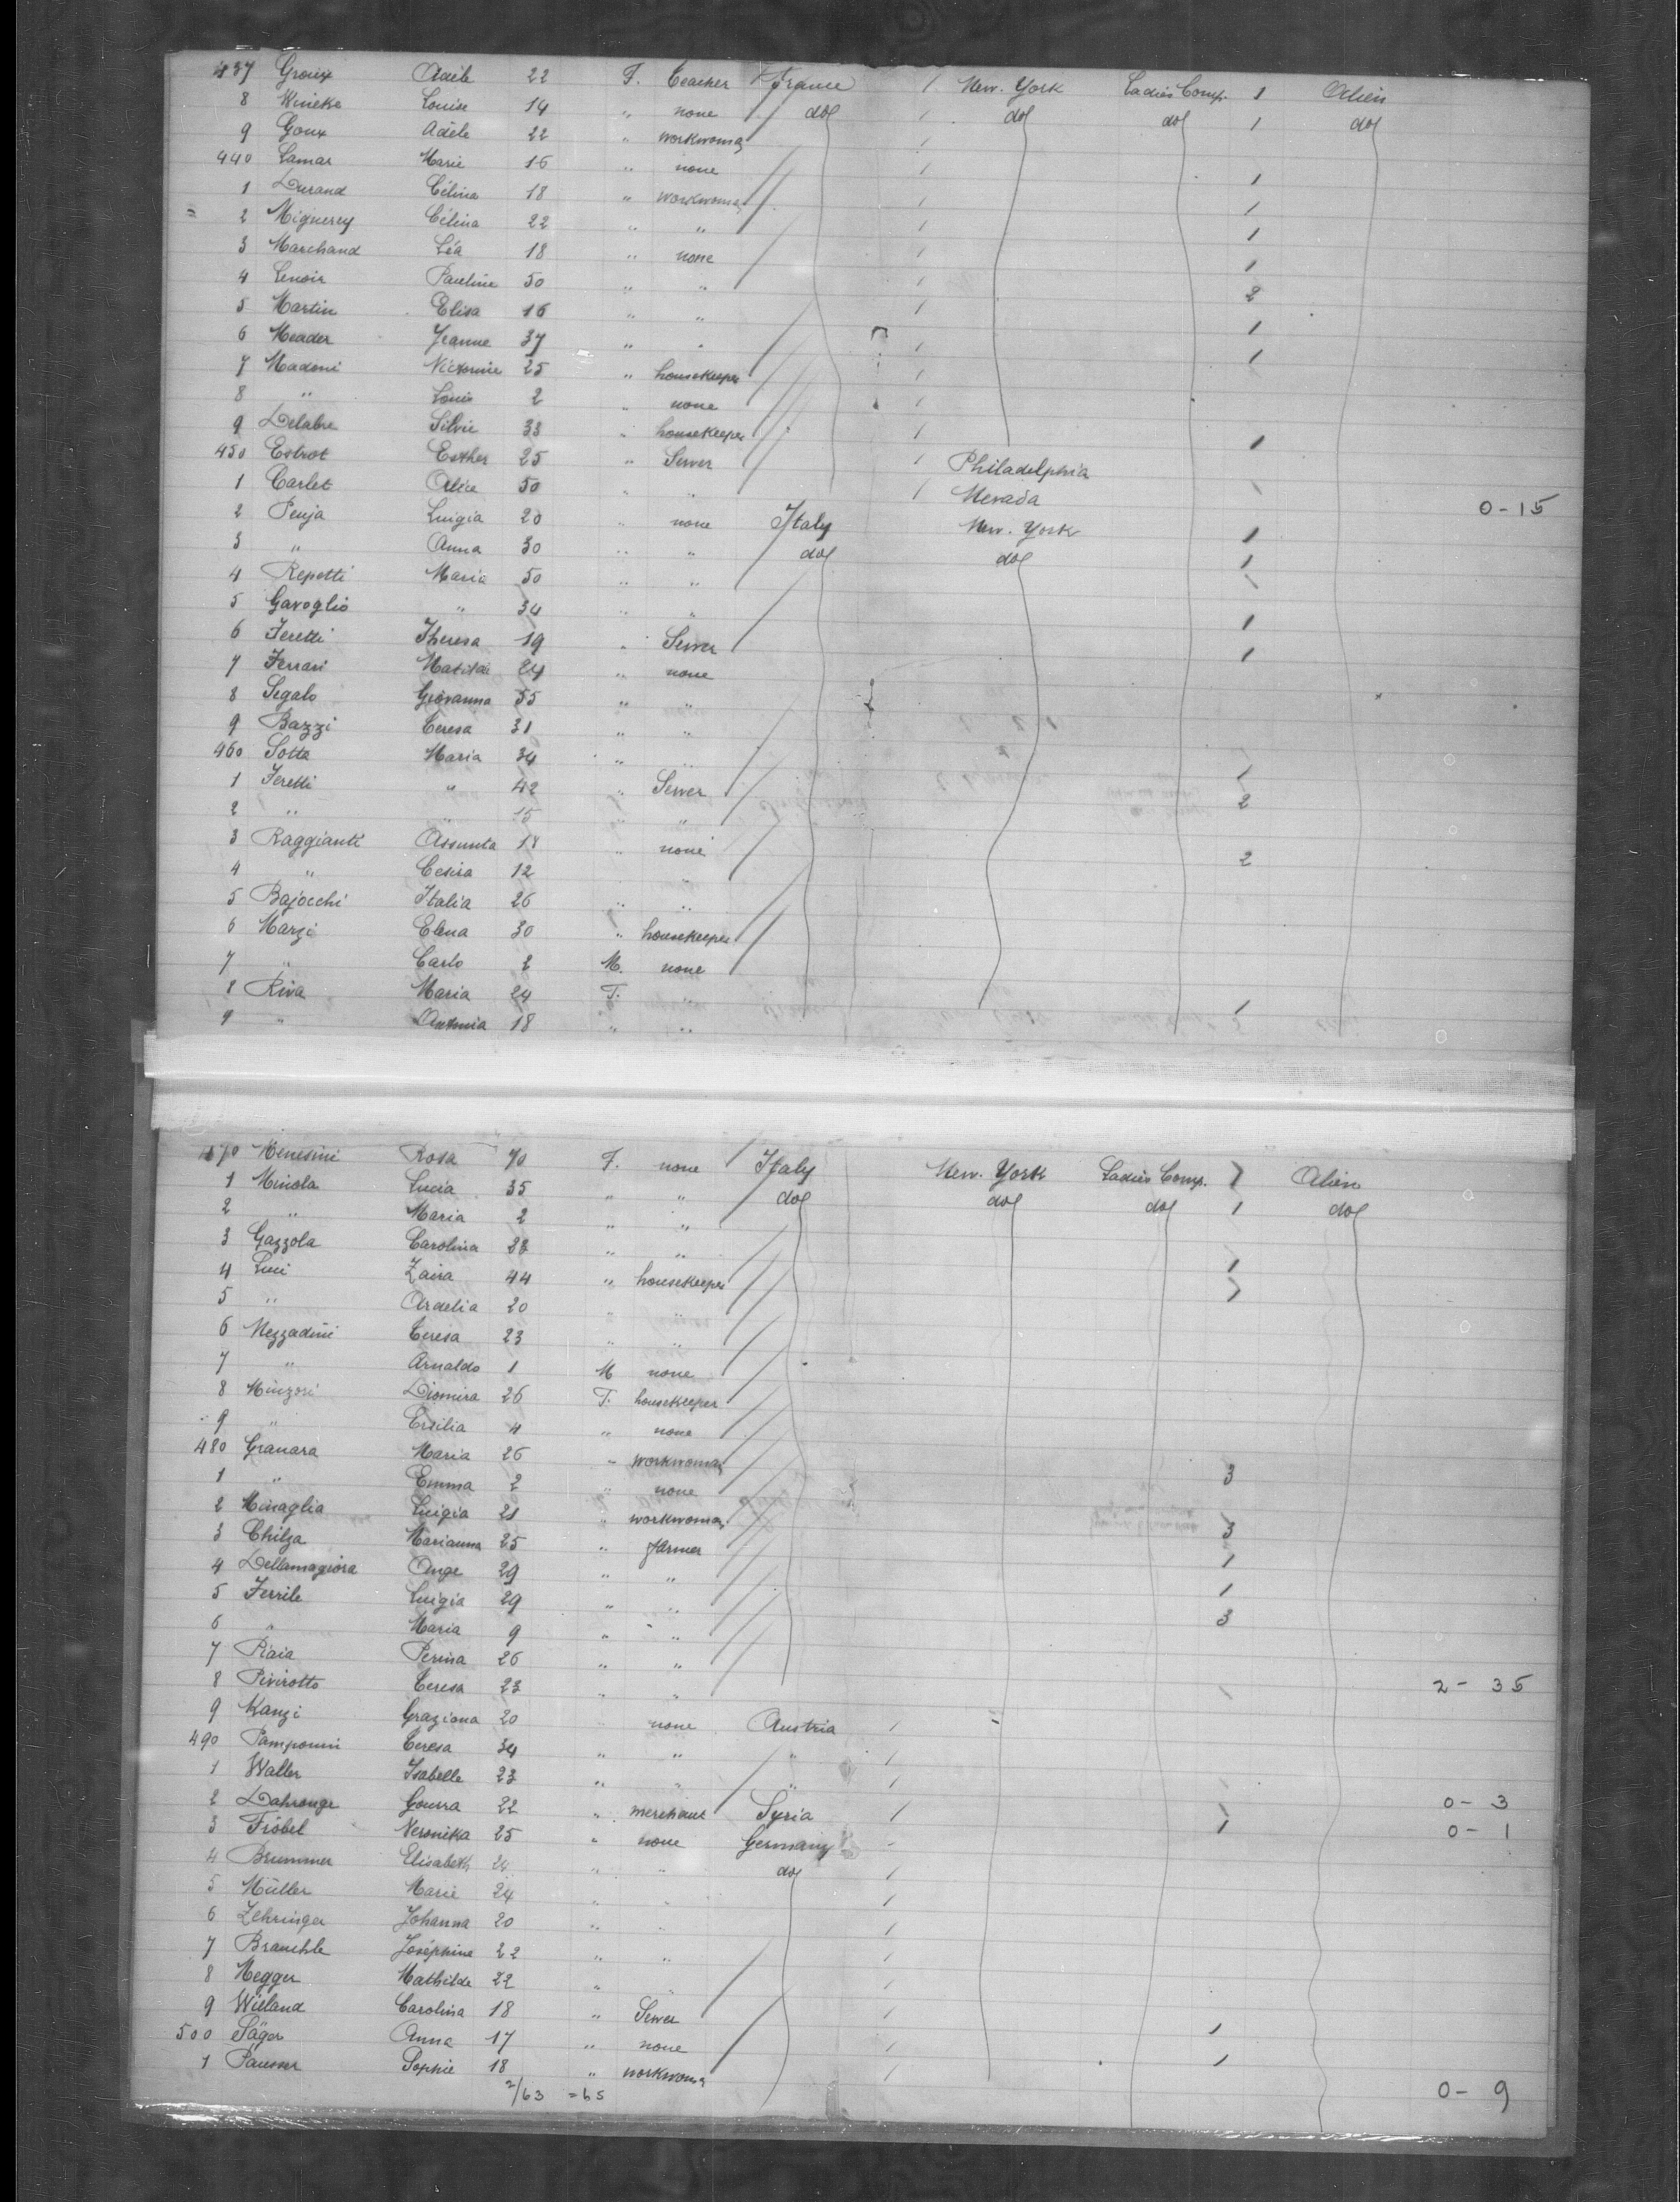 437 Groux Adèle 22 F. Teacher France 1 New. York Ladies Comp. 1 Alien
8 Wineke Louise 14 " none do 1 do do 1 do
9 Goux Adèle 22 " workwoman 1
440 Lamar Marie 16 " none 1 1
1 Durand Célina 18 " workwoman 1 1
2 Miguerey Célina 22 " " 1 1
3 Marchand Léa 18 " none 1 1
4 Lenoir Pauline 50 " " 1 2
5 Martin Elisa 16 " " 1 1
6 Meader Jeanne 37 " " 1 1
7 Madoni Victorine 25 " housekeeper 1
8 " Louis 2 " none 1
9 Delabre Silvie 33 " housekeeper 1 1
450 Estrot Esther 25 " Sewer 1 Philadelphia
1 Carlet Alice 50 " " 1 Nevada 0-15
2 Penja Luigia 20 " none Italy New. York 1
3 " Anna 30 " " do do 1
4 Repetti Maria 50 " "
5 Gavoglio " 34 " " 1
6 Feretti Theresa 19 " Sewer 1
7 Ferrari 24 " none
8 Segalo Giovanna 55 " "
9 Bazzi Teresa 31 " "
460 Sotta Maria 34 " "
1 Feretti " 42 " Sewer 1
2 " " 15 " " 2
3 Raggianti Assunta 18 " none
4 " Cesira 12 " " 2
5 Bajocchi Italia 26 " "
6 Marzi Elena 30 " housekeeper
7 " Carlo 2 M. none
8 Riva Maria 24 F. "
9 " Antonia 18 " " 1
470 Menesini Rosa 70 F. none Italy New. York Ladies Comp. 1 Alien
1 Minola Lucia 35 " " do do do 1 do
2 " Maria 2 " "
3 Gazzola Carolina 23 " " 1
4 Luci Zaira 44 " housekeeper 1
5 " Ardelia 20 " "
6 Mezzadini Teresa 23 " "
7 " Arnaldo 1 M none
8 Minzoni Diomira 26 F. housekeeper
9 " Ersilia 4 " none
480 Granara Maria 26 " workwoman
1 " Emma 2 " none 3
2 Minaglia Luigia 21 " workwoman
3 Chilza Marianna 25 " farmer 3
4 Dellamagiora Ange 29 " " 1
5 Ferrile Luigia 29 " " 1
6 " Maria 9 " " 3
7 Raia Perina 26 " "
8 Pivirotto Teresa 23 " " 2- 35
9 Kanzi Graziona 20 " none Austria 1
490 Pamponni Teresa 34 " " " 1
1 Waller Isabelle 23 " " " 1
2 Dahrouge Gourra 22 " merchant Syria 1 0- 3
3 Fröbel Veronika 25 " none Germany 1 0- 1
4 Brummer Elisabeth 24 " " do 1
5 Müller Marie 24 " " 1
6 Zehringer Johanna 20 " " 1
7 Brauchle Joséphine 22 " " 1
8 Megger Mathilde 22 " " 1
9 Wieland Carolina 18 " Sewer 1
500 Säger Anna 17 " none 1 1
1 Pausser Sophie 18 " workwoman 1 1
2/63 = 65 0- 9